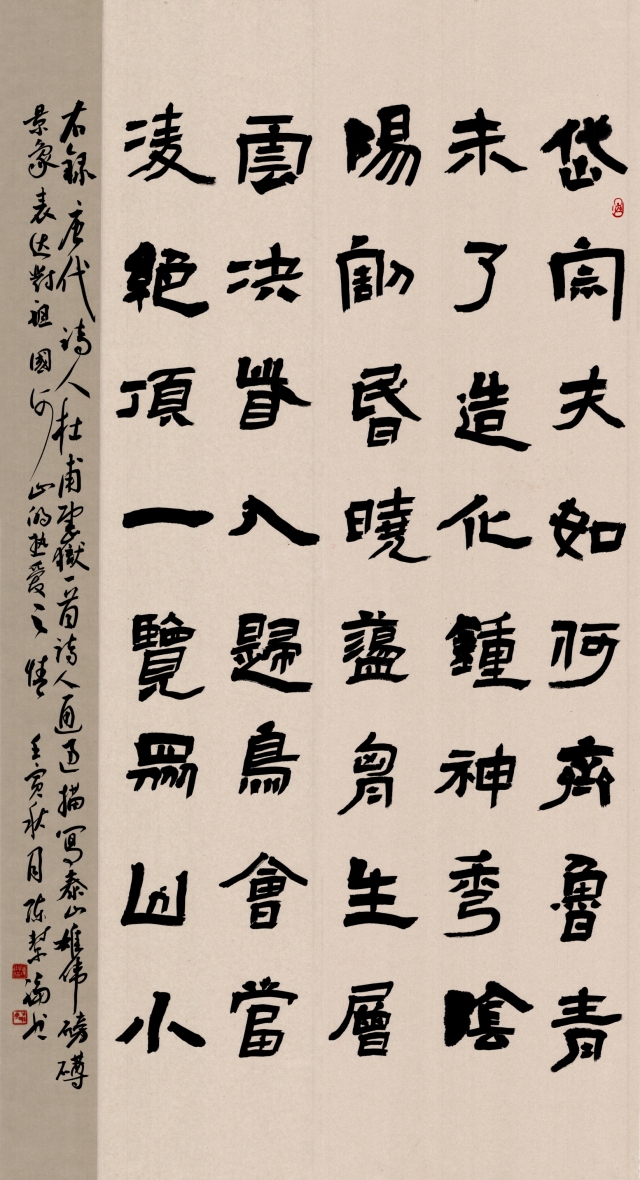 岱宗夫如何齊魯青
未了造化鍾神秀陰
陽割昏曉盪胷生層
雲决眥入歸鳥會當
凌絕頂一覽眾山小
右錄唐代詩人杜甫望嶽一首詩人通過描寫泰山雄伟磅礴
景象表达對祖國河山的热愛之情 壬寅秋月陈书